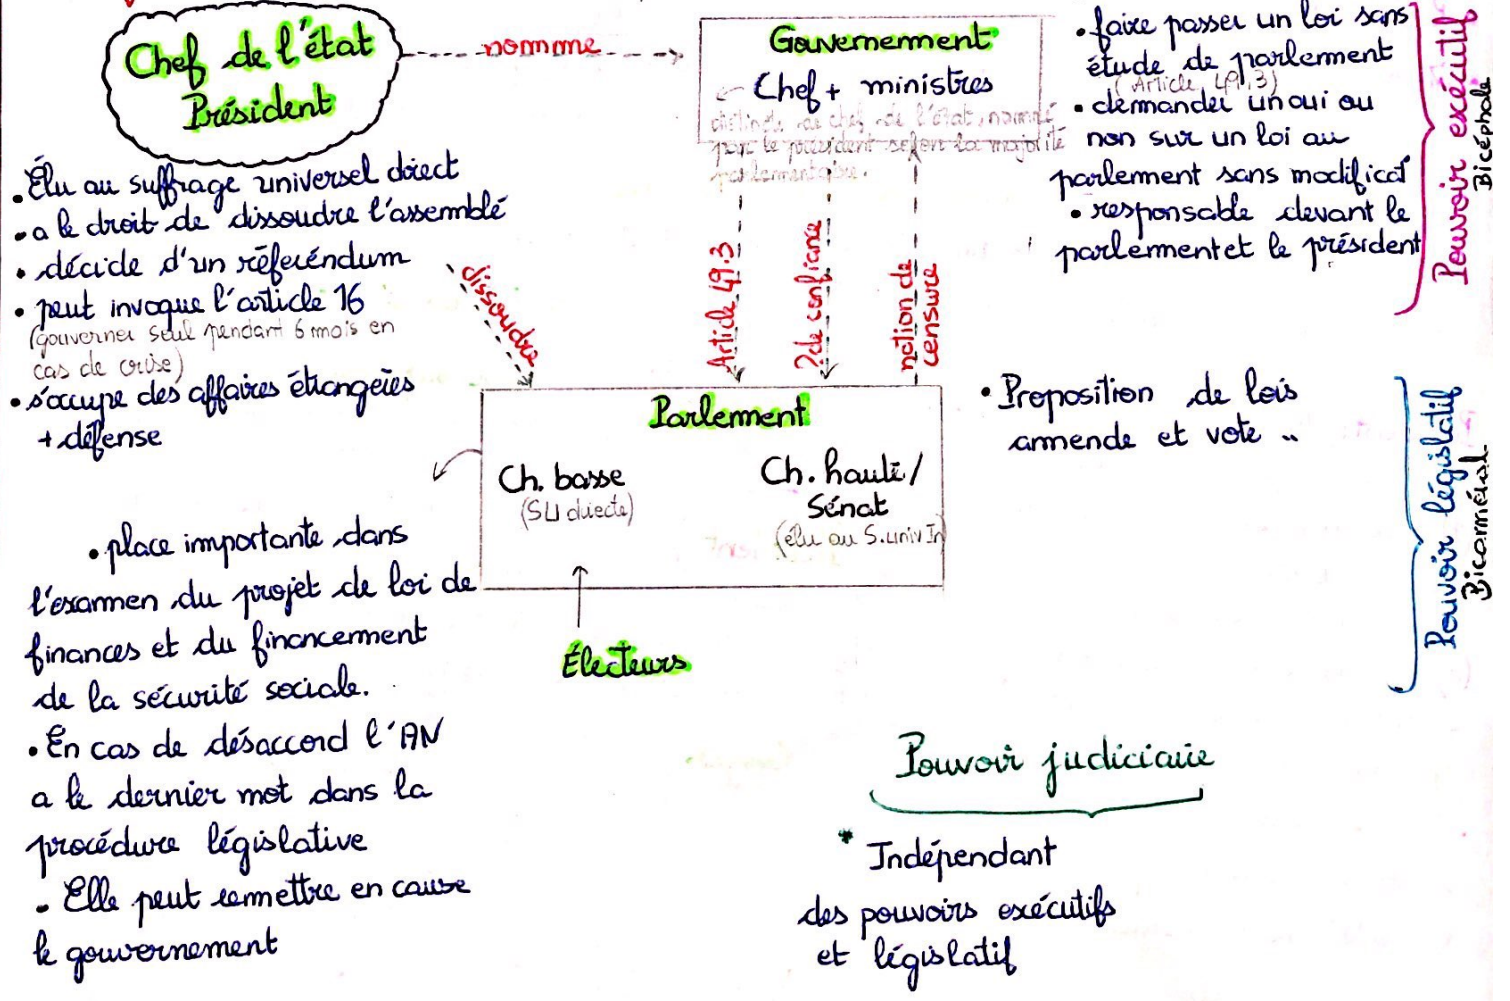 Chef de l'état
Président
nomme
Gouvernement
Chef + ministres
distinct de chef de l'état, nommé
par le président selon la majorité
parlementaire.
• faire passer un loi sans
étude de parlement
(Article 49.3)
• demander un oui ou
non sur un loi au
parlement sans modificat°
• responsable devant le
parlement et le président
Pouvoir exécutif
Bicéphale
• Élu au suffrage universel direct
• a le droit de dissoudre l'assemblé
• décide d'un réferéndum
• peut invoque l'article 16
(gouverner seul pendant 6 mois en
cas de crise)
• s'occupe des affaires étrangeies
+ défense
dissoudre
Article 49.3
?de confiance
notion de
censure
Parlement
Ch. basse
(SU directe)
Ch. haute /
Sénat
(élu au S.univ In
• Proposition de lois
amende et vote ..
Pouvoir législatif
Bicamméral
Électeurs
• place importante dans
l'examen du projet de loi de
finances et du financement
de la sécurité sociale.
• En cas de désaccord l'AN
a le dernier mot dans la
procédure législative
• Elle peut remettre en cause
le gouvernement
Pouvoir judiciaire
* Indépendant
des pouvoirs exécutifs
et législatif